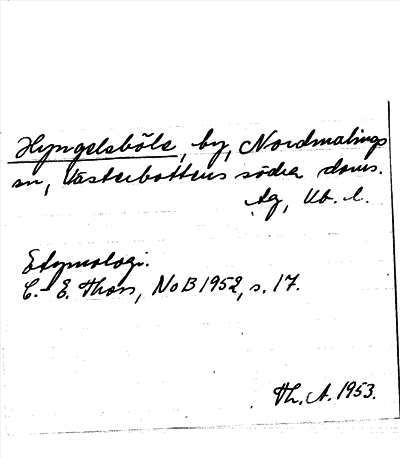 Hyngelsböle, by, Nordmalings
sn, Västerbottens södra doms.
tg, Vb. l.
Etymologi.
C.-E. Thors, NoB 1952, s. 17.
Th. A. 1953.